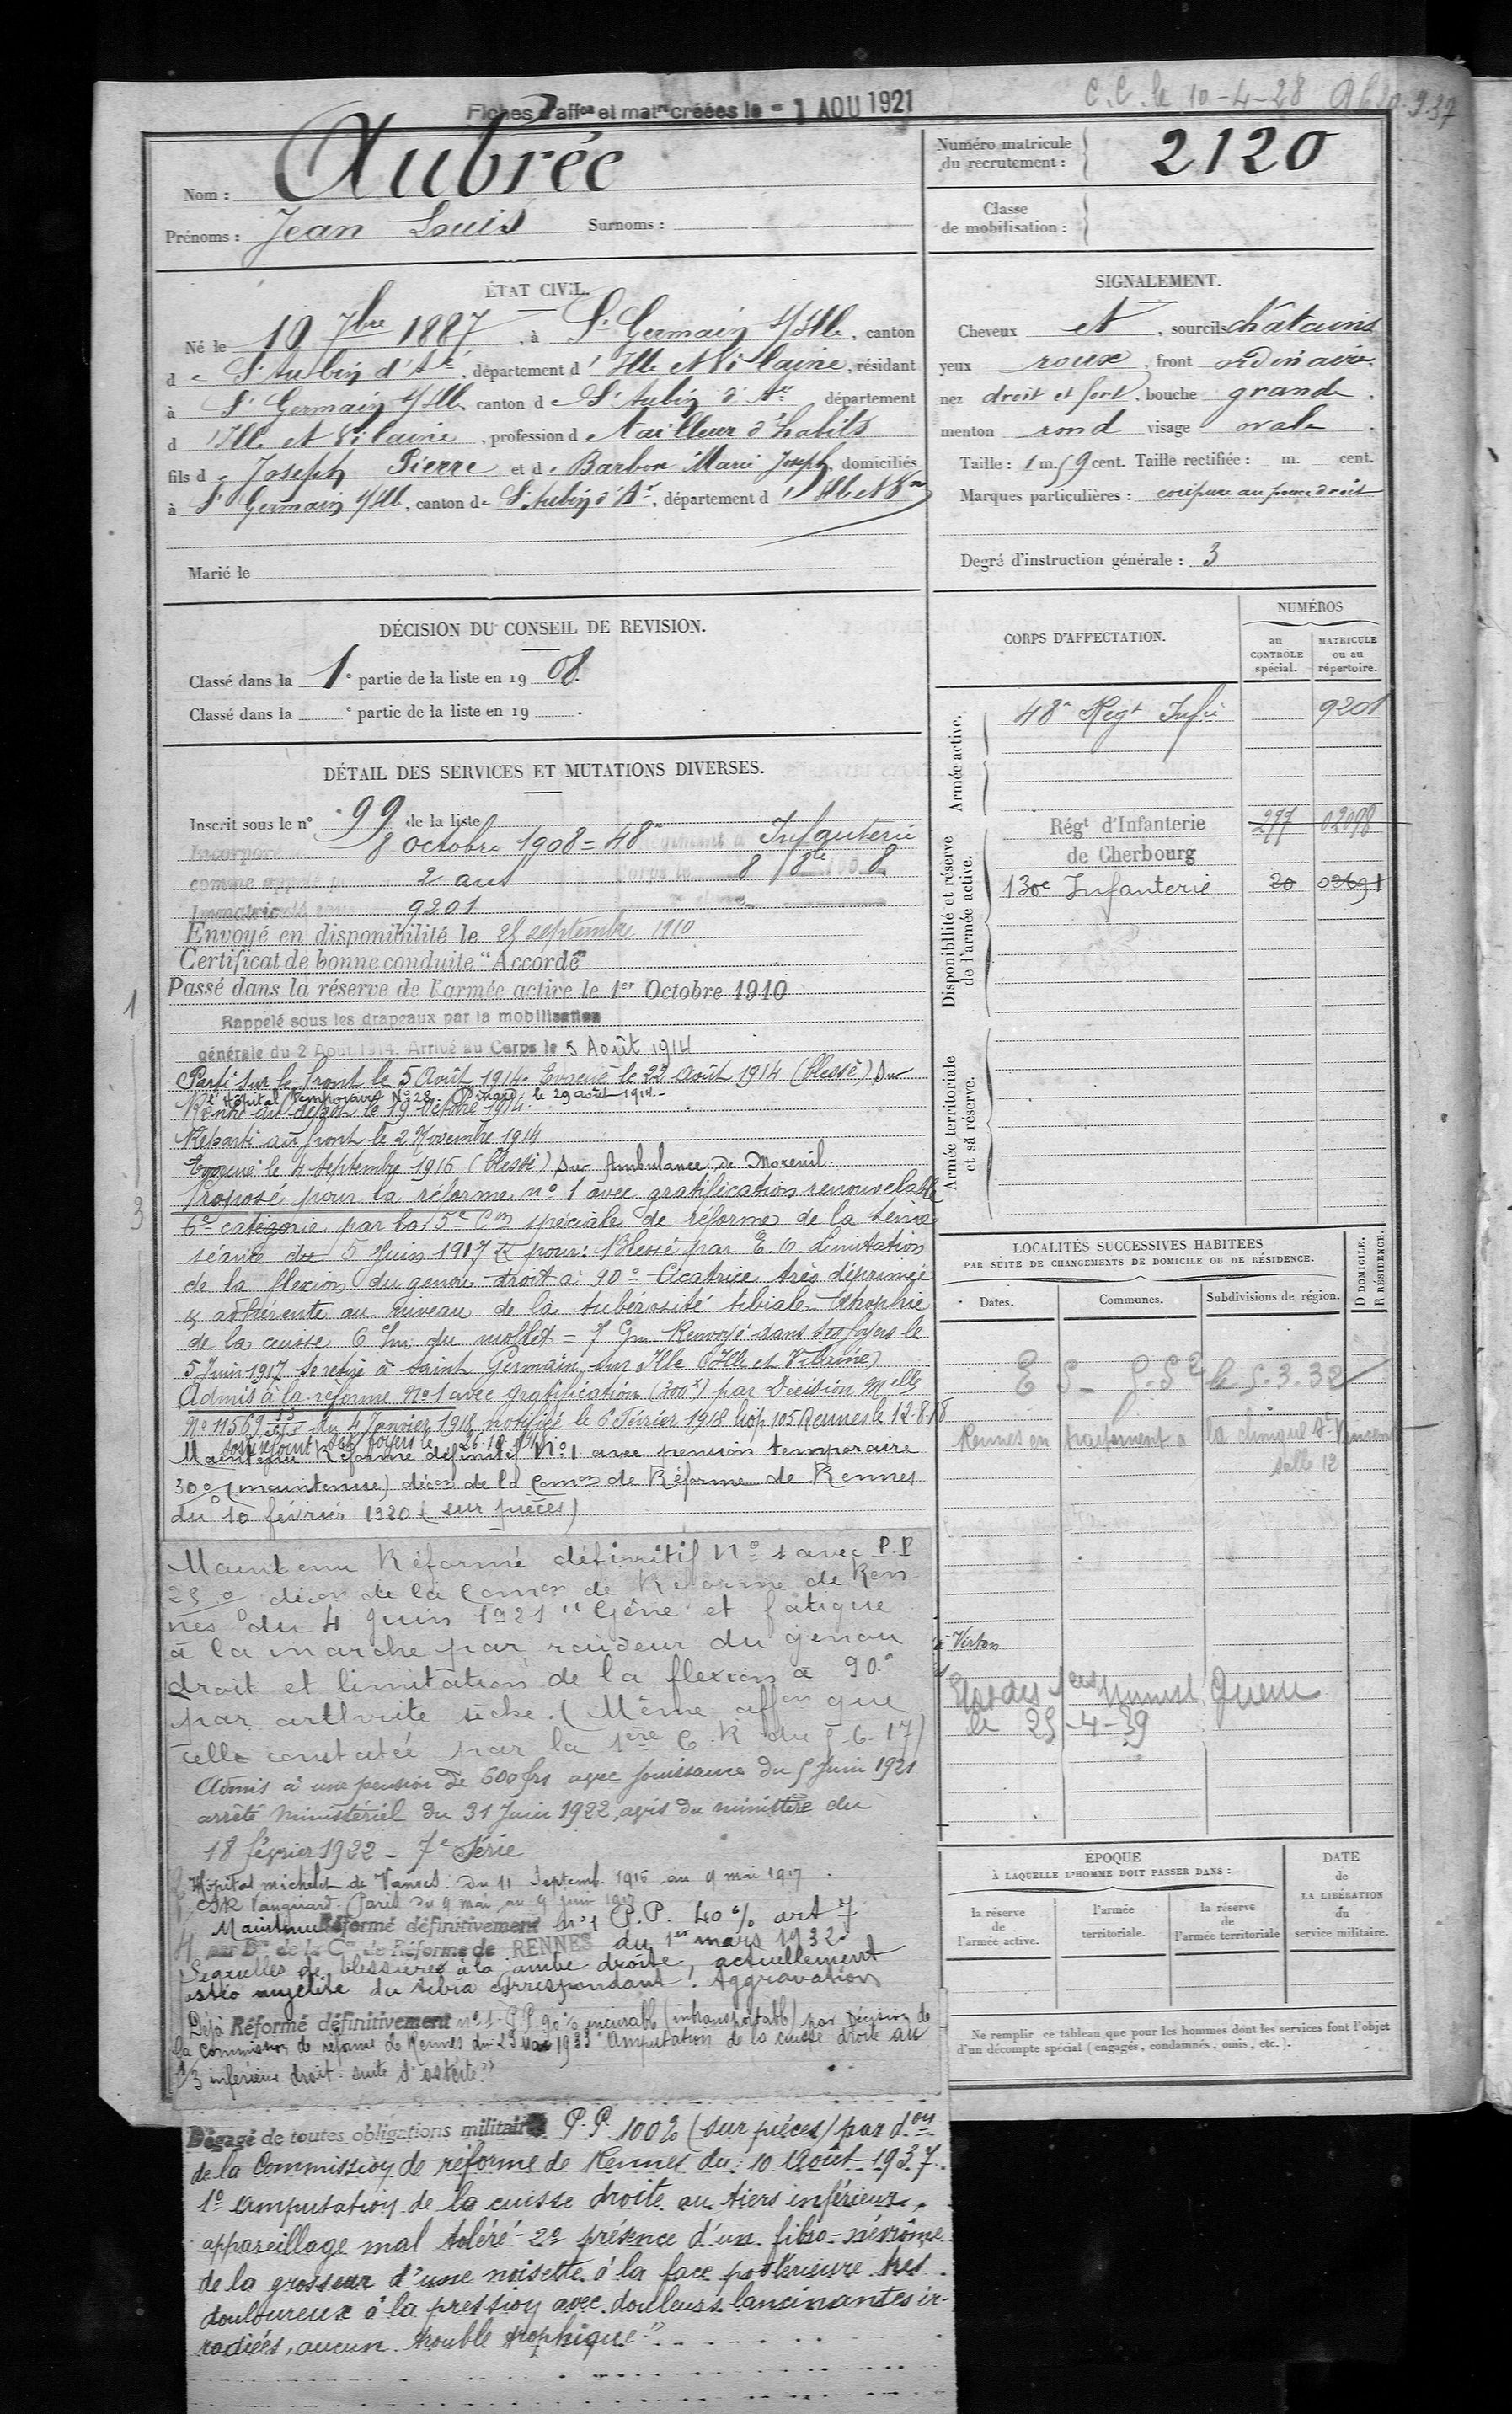 Fiches d'affon et matre créées le - 1 AOU 1921
C.C. le 10-4-28
Nom : Aubrée
Prénoms : Jean Louis Surnoms :
Numéro matricule du recrutement : 2120
Classe de mobilisation :
ÉTAT CIVIL.
Né le 10 7bre 1887, à St Germain s/Ille, canton
de St Aubin d'Aé, département d'Ille et Vilaine, résidant
à St Germain s/Ille, canton de St Aubin d'Aé département
d'Ille et Vilaine, profession de tailleur d'habits
fils de Joseph Pierre et de Barbon Marie Joseph, domiciliés
à St Germain s/Ille, canton de St Aubin d'Aé, département d'Ille et Vne
Marié le
SIGNALEMENT.
Cheveux et, sourcils châtains
yeux roux, front ordinaire
nez droit et fort, bouche grande
menton rond visage ovale
Taille : 1 m. 59 cent. Taille rectifiée : m. cent.
Marques particulières : coupure au pouce droit
Degré d'instruction générale : 3
DÉCISION DU CONSEIL DE REVISION.
Classé dans la 1e partie de la liste en 1908.
Classé dans la e partie de la liste en 19 .
DÉTAIL DES SERVICES ET MUTATIONS DIVERSES.
Inscrit sous le n° 99 de la liste
Incorporé 8 octobre 1908 = 48e Régiment d'Infanterie
comme appelé 2 ans corps le 8 8bre 1908
Immatriculé 9201
Envoyé en disponibilité le 25 septembre 1910
Certificat de bonne conduite "Accordé"
Passé dans la réserve de l'armée active le 1er Octobre 1910
Rappelé sous les drapeaux par la mobilisation
générale du 2 Août 1914. Arrivé au Corps le 5 Août 1914
Parti sur le front le 5 Août 1914. Evacué le 22 Août 1914 (blessé) sur
l'Hôpital Temporaire N° 28 Dinard le 29 août 1914.-
Rentré au dépôt le 19 Octobre 1914
Reparti au front le 2 Novembre 1914
Evacué le 4 Septembre 1916 (blessé) sur Ambulance de Moreuil.
Proposé pour la réforme n° 1 avec gratification renouvelable
6e catégorie par la 5e Con spéciale de réforme de la Seine
séance du 5 Juin 1917 pour : Blessé par E.O. Limitation
de la flexion du genou droit à 90° Cicatrice très déprimée
& adhérente au niveau de la tubérosité tibiale Atrophie
de la cuisse 6 c/m du mollet = 7 c/m Renvoyé dans ses foyers le
5 Juin 1917 se retire à Saint Germain sur Ille (Ille et Vilaine)
Admis à la réforme N° 1 avec gratification (300f) par Décision Melle
N° 11569 du 4 Janvier 1918 notifiée le 6 Février 1918 hôp. 105 Rennes le 12-8-18
Maintenu Réformé définitif N° 1 avec pension temporaire
30% (maintenue) décon de la Comon de Réforme de Rennes
du 10 février 1920 (sur pièces)
Maintenu Réformé définitif N° 1 avec P.P
25% décon de la Comon de Réforme de Ren-
nes du 4 Juin 1921 "Gêne et fatigue
à la marche par raideur du genou
droit et limitation de la flexion à 90°
par arthrite sèche. (Même affon que
celle constatée par la 1ère C.R du 5.6.17)
Admis à une pension de 600 frs avec jouissance du 5 Juin 1921
arrêté ministériel du 31 Juin 1922, avis du ministère du
18 février 1922 - 7e Série
Hôpital michelet de Vanves du 11 Septemb. 1916 au 9 mai 1917.
Vaugirard. Paris du 9 mai au 9 juin 1917
Maintenu Réformé définitivement n° 1 P.P. 40% art 7
par Don de la Con de Réforme de RENNES du 1er mars 1932
Sequelles de blessures à la jambe droite, actuellement
ostéo myélite du tibia correspondant. Aggravation
Déjà Réformé définitivement n° 1 - P.P. 90% incurable (intransportable) par Décision de
la Commission de réforme de Rennes du 23 Mai 1933 "Amputation de la cuisse droite au
1/3 inférieur droit suite d'ostéite."
Dégagé de toutes obligations militaires P.P. 100% (sur pièces) par don
de la Commission de réforme de Rennes du 10 Août 1937.
1° amputation de la cuisse droite au tiers inférieur,
appareillage mal toléré - 2° présence d'un fibro-névrôme
de la grosseur d'une noisette à la face postérieure très
douloureux à la pression avec douleurs lancinantes ir-
radiées, aucun trouble trophique"
CORPS D'AFFECTATION.
NUMÉROS
au CONTRÔLE spécial.
MATRICULE ou au répertoire.
Armée active.
48e Regt Infie 9201
Disponibilité et réserve de l'armée active.
Régt d'Infanterie de Cherbourg 277 02098
130e Infanterie 20 02691
Armée territoriale et sa réserve.
LOCALITÉS SUCCESSIVES HABITÉES
PAR SUITE DE CHANGEMENTS DE DOMICILE OU DE RÉSIDENCE.
Dates. Communes. Subdivisions de région. D DOMICILE. R RÉSIDENCE.
le 5-3-32
Rennes en traitement à la clinique St Vincent
salle 12
à Virton
le 25-4-39
ÉPOQUE
À LAQUELLE L'HOMME DOIT PASSER DANS :
la réserve de l'armée active.
l'armée territoriale.
la réserve de l'armée territoriale
DATE de LA LIBÉRATION du service militaire.
Ne remplir ce tableau que pour les hommes dont les services font l'objet
d'un décompte spécial (engagés, condamnés, omis, etc.).